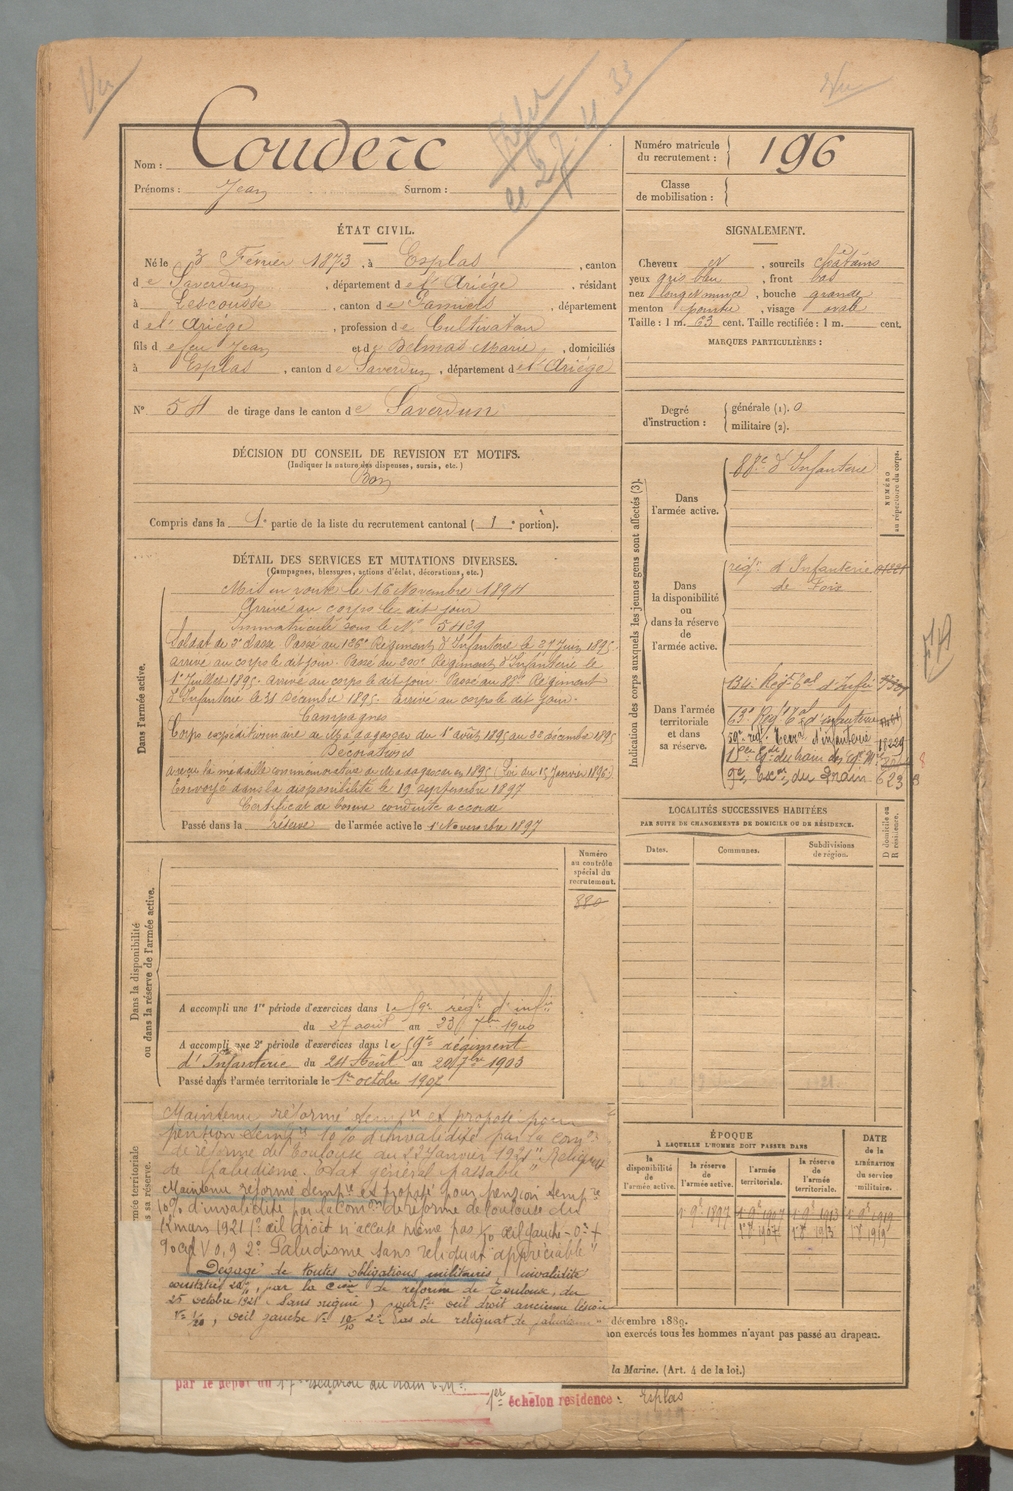 Vu
Vu
Nom : Couderc
Prénoms : Jean Surnom :
Numéro matricule du recrutement : 196
Classe de mobilisation :
ÉTAT CIVIL.
Né le 3 Février 1873, à Esplas, canton
de Saverdun, département de l'Ariège, résidant
à Lescousse, canton de Pamiers, département
de l'Ariège, profession de Cultivateur
fils de feu Jean et de Delmas Marie, domiciliés
à Esplas, canton de Saverdun, département de l'Ariége
N° 54 de tirage dans le canton de Saverdun
SIGNALEMENT.
Cheveux et, sourcils châtains
yeux gris bleu, front bas
nez long et mince, bouche grande
menton pointu, visage ovale
Taille : 1 m. 63 cent. Taille rectifiée : 1 m. cent.
MARQUES PARTICULIÈRES :
Degré d'instruction : générale (1). 0
militaire (2).
DÉCISION DU CONSEIL DE REVISION ET MOTIFS.
(Indiquer la nature des dispenses, sursis, etc.)
Bon
Compris dans la 1e partie de la liste du recrutement cantonal ( 1e portion).
DÉTAIL DES SERVICES ET MUTATIONS DIVERSES.
(Campagnes, blessures, actions d'éclat, décorations, etc.)
Dans l'armée active.
Mis en route le 16 Novembre 1894
Arrivé au corps le dit jour
Immatriculé sous le N° 5429
Soldat de 2e classe. Passé au 126e Régiment d'Infanterie le 27 Juin 1895.
arrivé au corps le dit jour. Passé du 200e Régiment d'Infanterie le
1er Juillet 1895. arrivé au corps le dit jour. Passé au 88e Régiment
d'Infanterie le 31 Décembre 1895. arrivé au corps le dit jour.
Campagnes
Corps expéditionnaire de Madagascar du 1er août 1895 au 30 décembre 1895
Décorations
a reçu la médaille commémorative de Madagascar en 1895 (Loi du 15 Janvier 1896)
Envoyé dans la disponibilité le 19 septembre 1897
Certificat de bonne conduite accordé
Passé dans la réserve de l'armée active le 1er Novembre 1897
Indication des corps auxquels les jeunes gens sont affectés (3).
NUMÉRO au répertoire du corps.
Dans l'armée active.
88e d'Infanterie
Dans la disponibilité ou dans la réserve de l'armée active.
régt. d'Infanterie
de Foix
Dans l'armée territoriale et dans sa réserve.
134e Régt Tal d'Infie
63e Régt Tal d'infanterie
59e régt. Terral d'infanterie 18229
9e Escon du Train 623
LOCALITÉS SUCCESSIVES HABITÉES
PAR SUITE DE CHANGEMENTS DE DOMICILE OU DE RÉSIDENCE.
Dates. Communes. Subdivisions de région.
D domicile ou R résidence.
Dans la disponibilité ou dans la réserve de l'armée active.
Numéro au contrôle spécial du recrutement.
880
A accompli une 1re période d'exercices dans le 59e régt d'infie
du 27 août au 23 7bre 1900
A accompli une 2e période d'exercices dans le 59e régiment
d'Infanterie du 24 Août au 20 7bre 1903
Passé dans l'armée territoriale le 1er octobre 1907
Maintenu réformé tempre et proposé pour
pension tempre 10 % d'invalidité par la comon
de réforme de Toulouse du Janvier 1921 "Reliquat
de Paludisme. Etat général passable"
Maintenu réformé tempre et proposé pour pension tempre
10 % d'invalidité par la Comon de réforme de Toulouse du
12 mars 1921 1° œil droit n'accuse même pas 1/10 œil gauche
2° Paludisme sans reliquat appréciable"
Dégagé de toutes obligations militaires, invalidité
par la Cion de réforme de Toulouse, du
25 octobre 1921. œil droit ancienne lésion
V= 1/20, œil gauche V= 10/10 2° Pas de reliquat de paludisme"
ÉPOQUE
À LAQUELLE L'HOMME DOIT PASSER DANS
DATE de la LIBÉRATION du service militaire.
la disponibilité de l'armée active. la réserve de l'armée active. l'armée territoriale. la réserve de l'armée territoriale.
1 9e 1897 1 9e 1907 1 9e 1913 1 9e 1919
décembre 1889.
non exercés tous les hommes n'ayant pas passé au drapeau.
la Marine. (Art. 4 de la loi.)
par le dépôt du 17e escadron du train
1er échelon résidence : Esplas